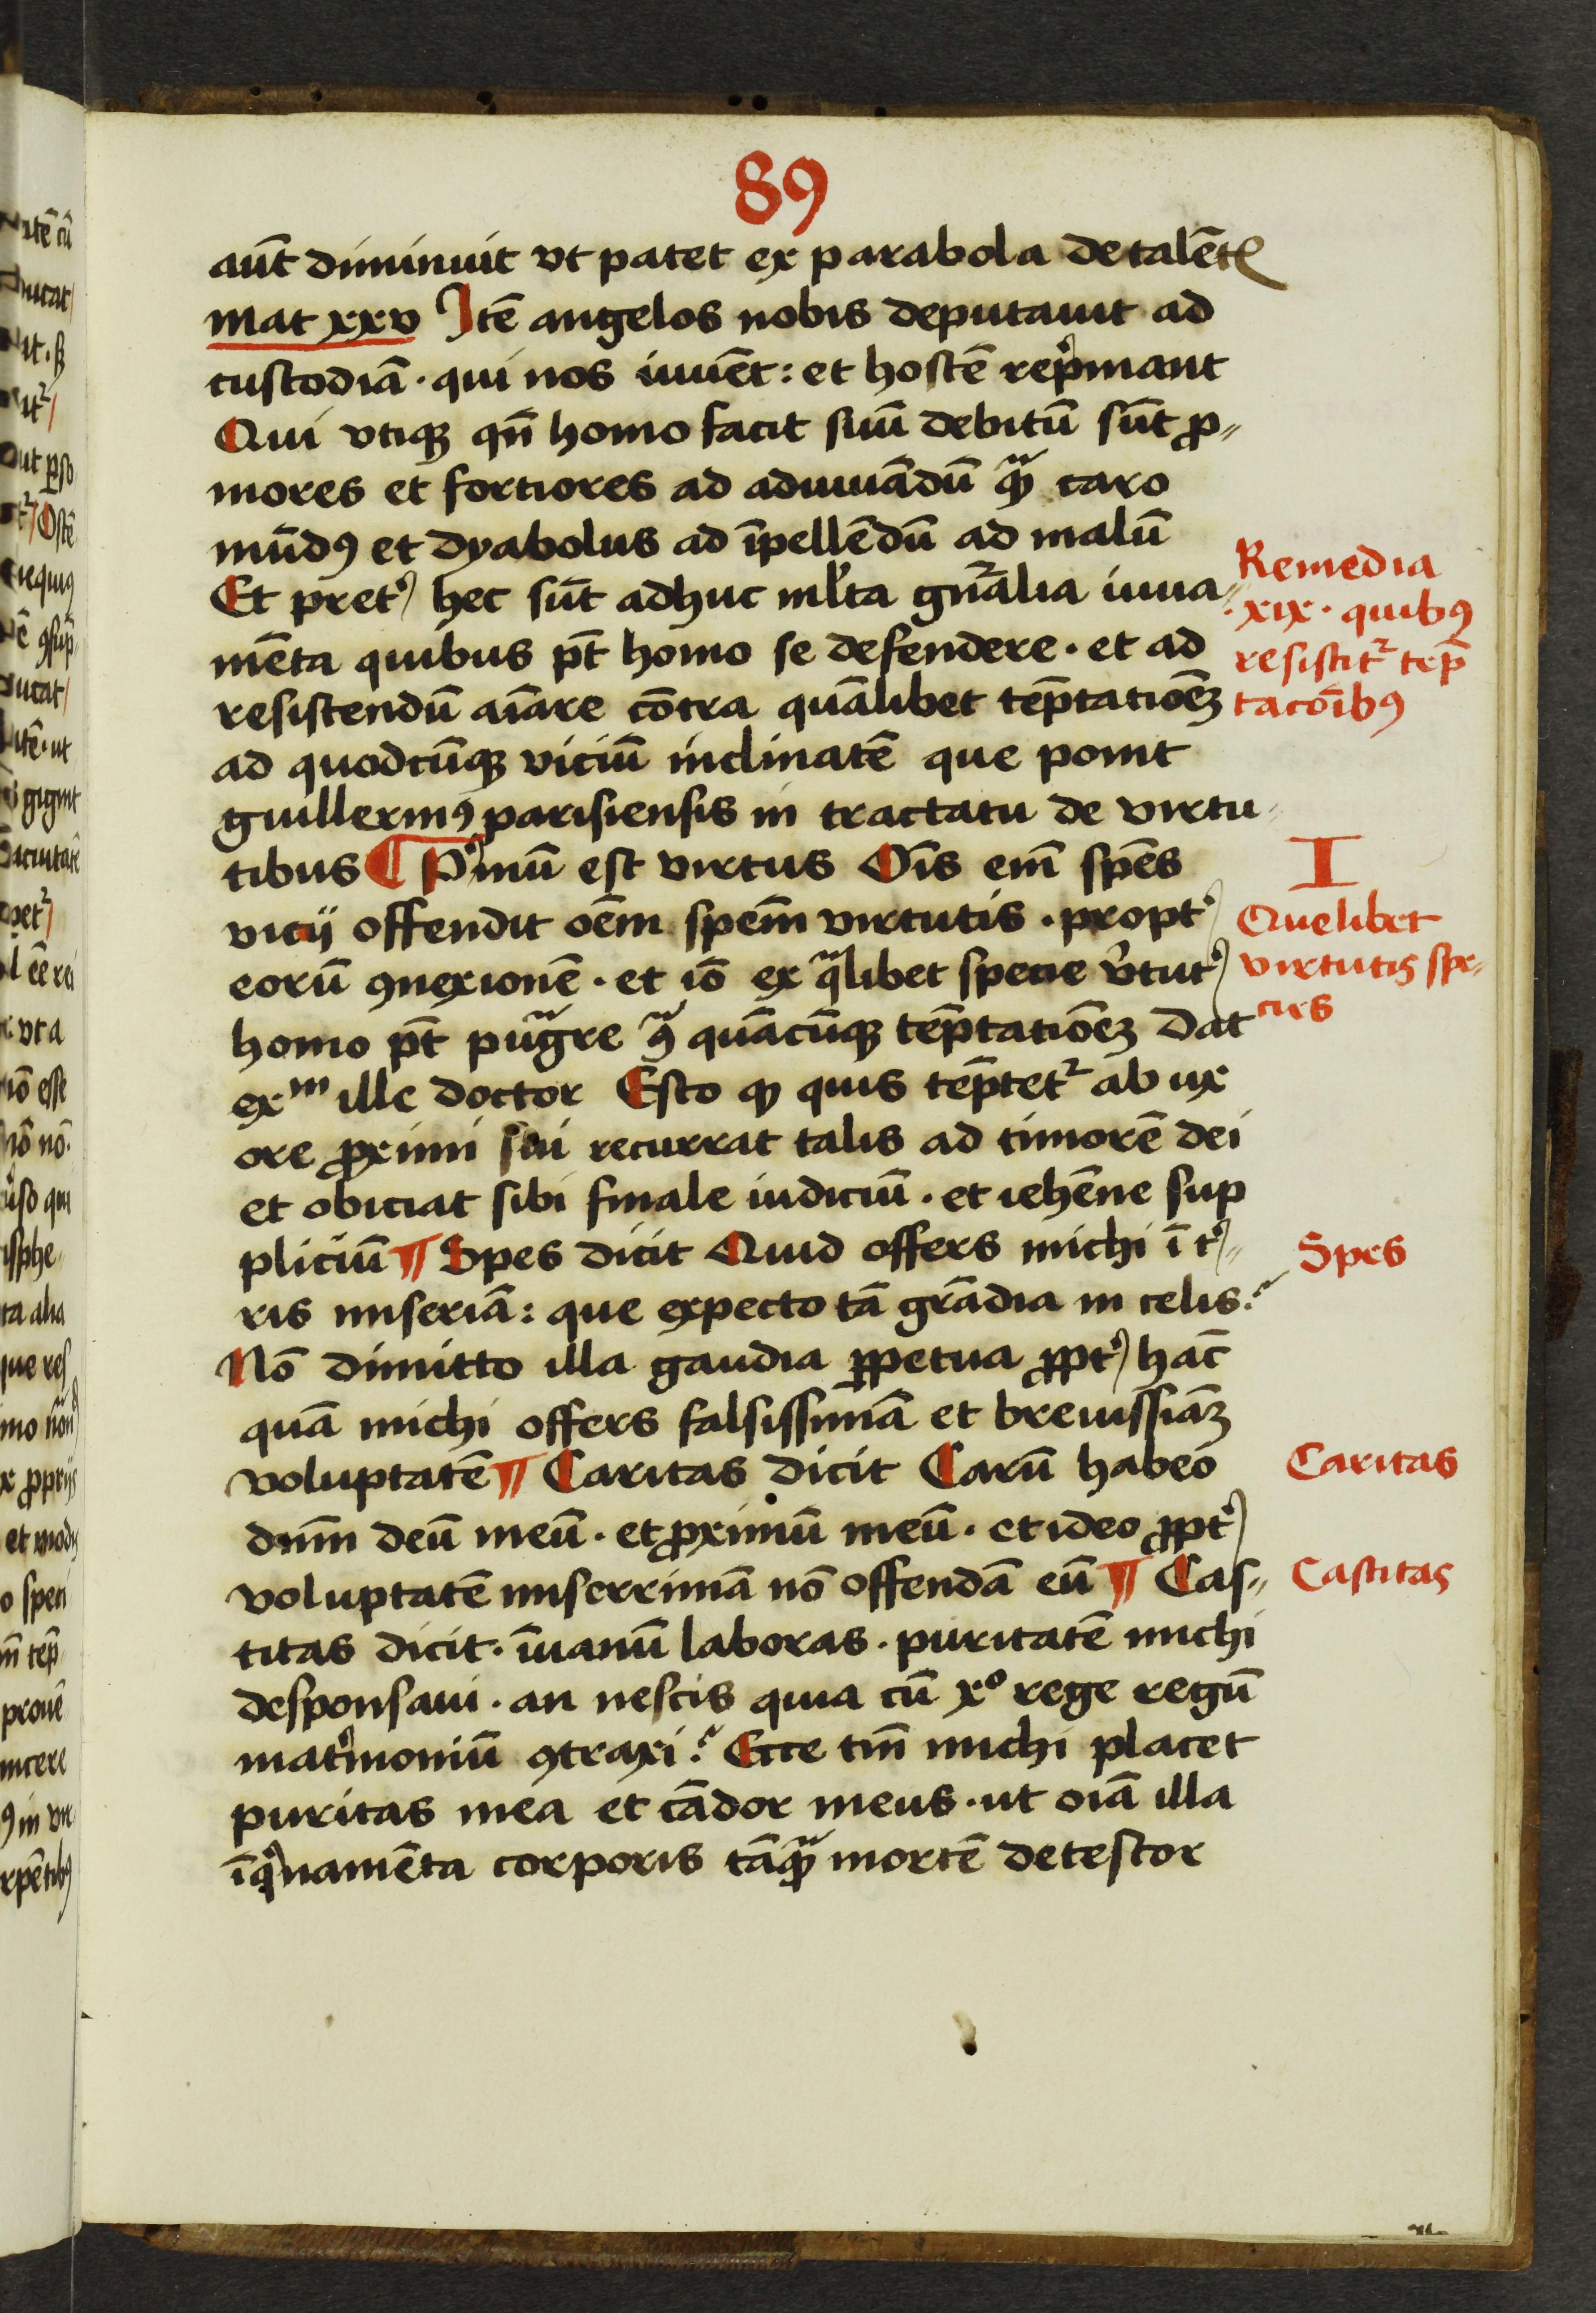 89
aūt diminuit vt patet ex parabola de talētꝭ
mat xxv Itē angelos nobis deputauit ad
custodiā · qui nos iuuēt : et hostē rep̍mant
Qui vtiqꝫ qn̄ homo facit suū debitū sūt ꝓ⸗
mores et fortiores ad adiuuādū qᷓꝫ caro
mūdꝯ et dyabolus ad īpellēdū ad malū
Et pret᾽ hec sūt adhuc ml̕ta gn̄alia iuua⸗
mēta quibus pt̄ homo se defendere · et ad
resistendū aīare cōtra quālibet tēptatiōeꝫ
ad quodcūqꝫ viciū inclinatē que ponit
guillermꝯ parisiensis in tractatu de virtu⸗
tibus ¶ P̍mū est virtus Oīs em̄ spēs
vicij offendit oēm spem̄ virtutis · propt᾽
eorū ꝯnexionē · et iō ex qᷓlibet specie v̕tut᾽
homo pt̄ pugᷓre ꝯᷓ quācūqꝫ tēptatiōeꝫ Dat
exᵐ ille doctor Esto ꝙ quis tēptetᷣ ab ux
ore ꝓximi sui recurrat talis ad timorē dei
et obiciat sibi finale iudiciū · et iehēne sup
pliciū ¶ Spes dicit Quid offers michi ī t᾽⸗
ris miseriā : que expecto tā grādia in celis ?
Nō dimitto illa gaudia ꝑpetua ꝓpt᾽ hāc
quā michi offers falsissimā et breuissīaꝫ
voluptatē ¶ Caritas dicit Carū habeo
dnm̄ deū meū · et ꝓximū meū · et ideo ꝓpt᾽
voluptatē miserrimā nō offendā eū ¶ Cas⸗
titas dicit · īuanū laboras · puritatē michi
desponsaui · an nescis quia cū xº rege regū
mat̍moniū ꝯtraxi ? Ecce tm̄ michi placet
puritas mea et cādor meus · ut oīa illa
īq̍namēta corporis tāqᷓꝫ mortē detestor
Remedia
· xix · quibꝯ
resistitᷣ tēp
tacōībꝯ
I
Quelibet
virtutis spe⸗
cies
Spes
Caritas
Castitas